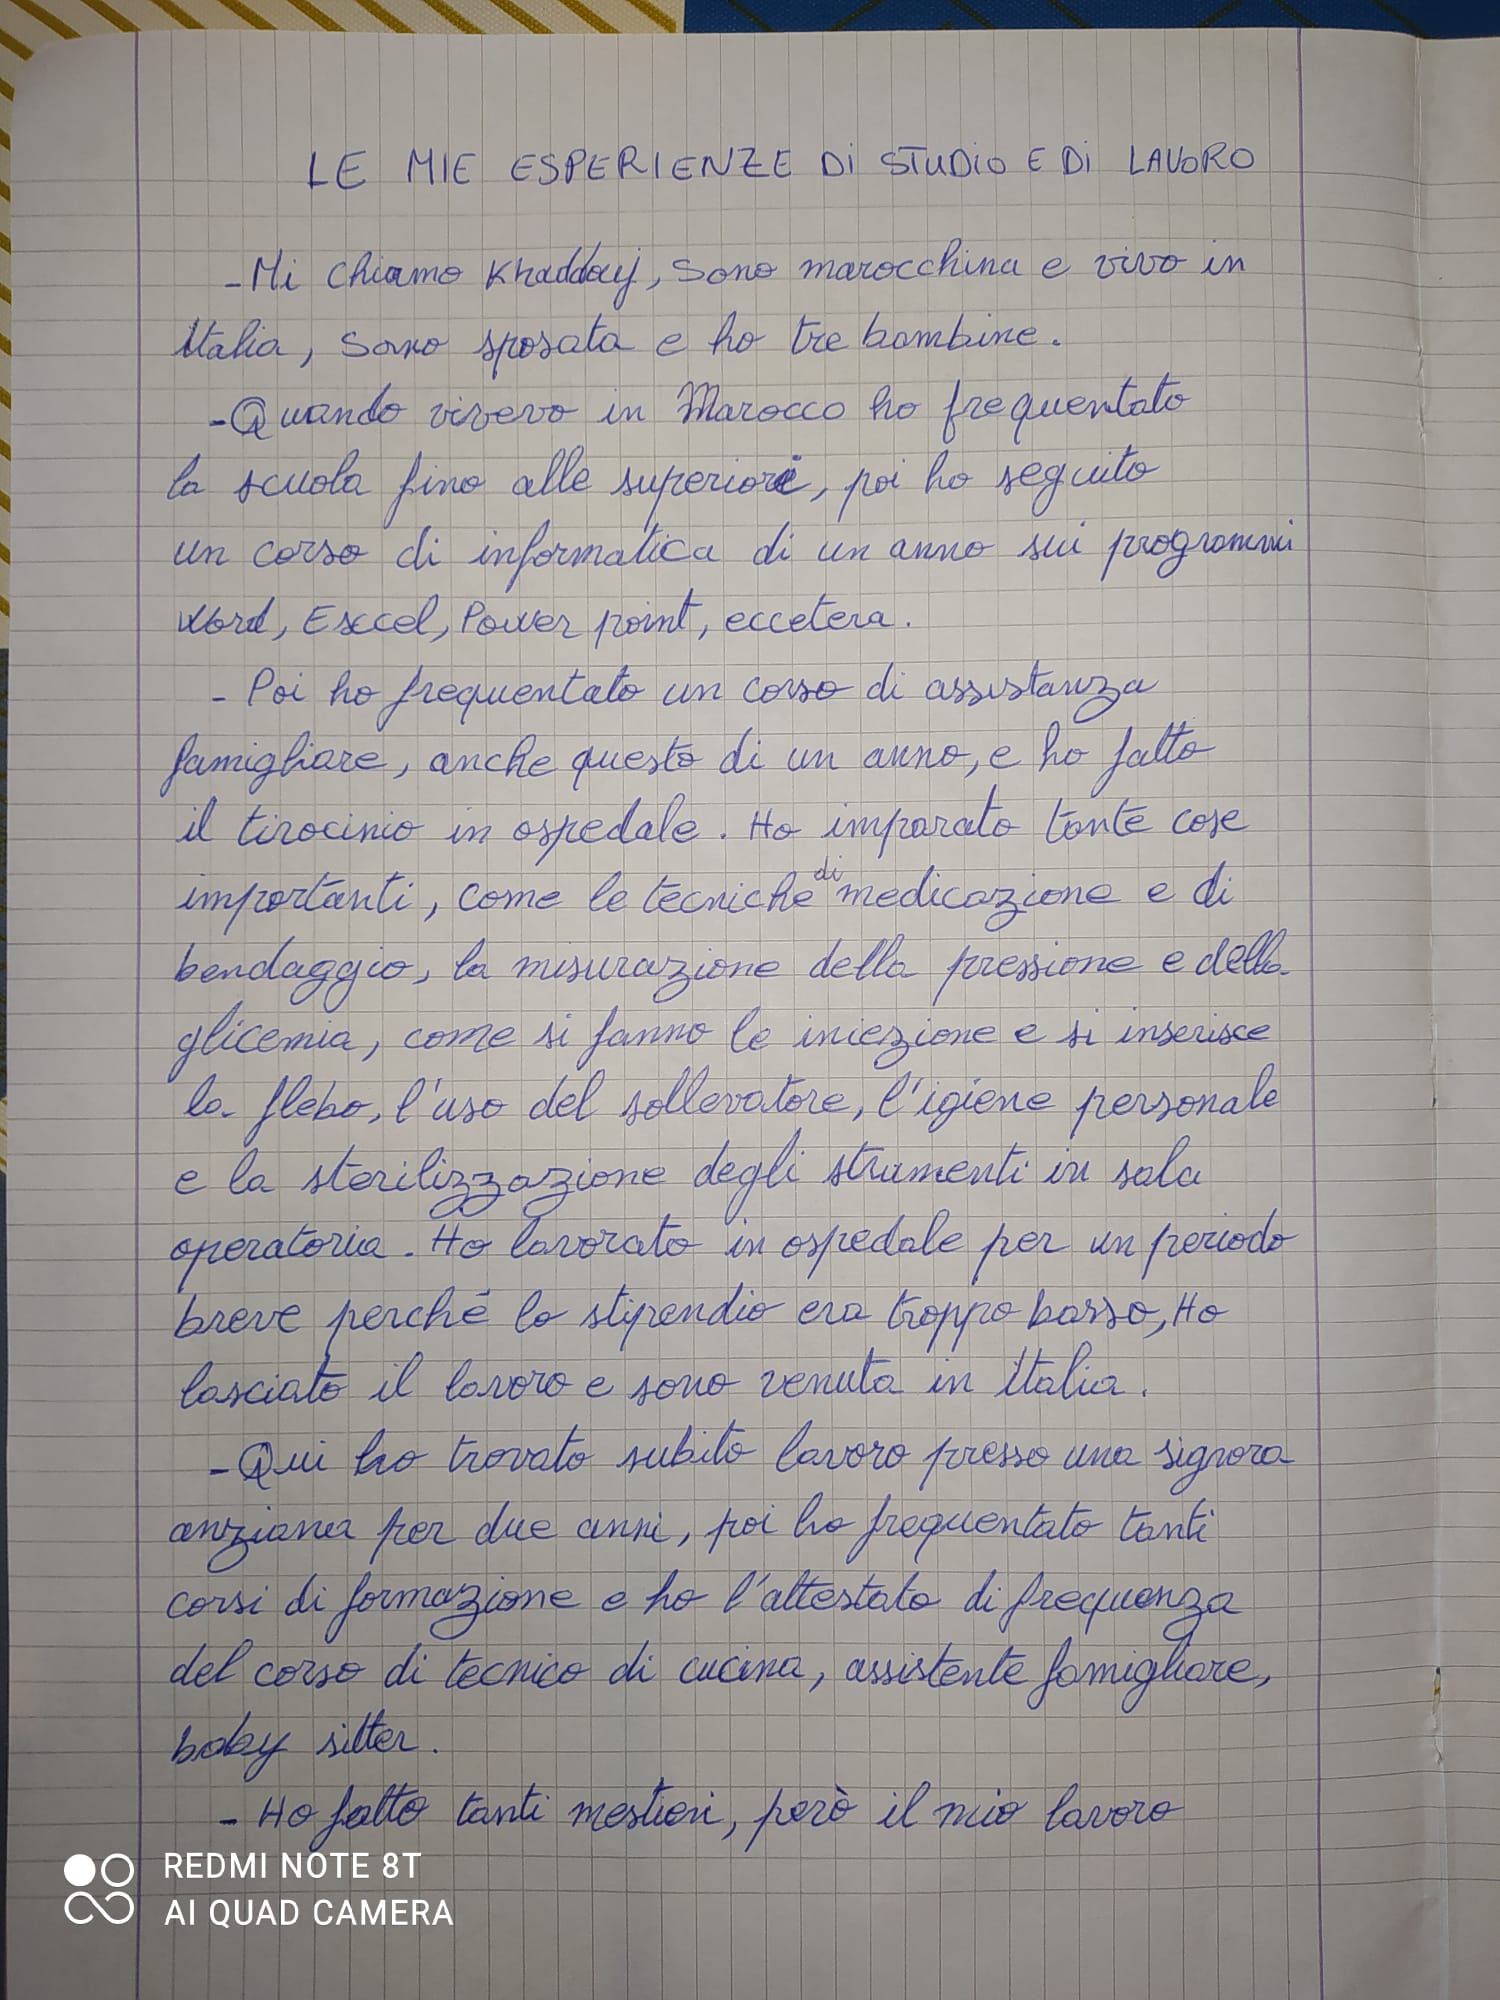 LE MIE ESPERIENZE Di STUDIO E Di LAVORO
- Mi chiamo Khaddouj, sono marocchina e vivo in
Italia, sono sposata e ho tre bambine.
- Quando vivevo in Marocco ho frequentato
la scuola fino alle superiori, poi ho seguito
un corso di informatica di un anno sui programmi
Word, Exccel, Power point, eccetera.
- Poi ho frequentato un corso di assistanza
famigliare, anche questo di un anno, e ho fatto
il tirocinio in ospedale. Ho imparato tante cose
importanti, come le tecniche di medicazione e di
bendaggio, la misurazione della pressione e della
glicemia, come si fanno le iniezione e si inserisce
la flebo, l'uso del sollevatore, l'igiene personale
e la sterilizzazione degli strumenti in sala
operatoria. Ho lavorato in ospedale per un periodo
breve perché lo stipendio era troppo basso, Ho
lasciato il lavoro e sono venuta in Italia.
- Qui ho trovato subito lavoro presso una signora
anziana per due anni, poi ho frequentato tanti
corsi di formazione e ho l'attestato di frequenza
del corso di tecnico di cucina, assistente famigliare,
baby sitter.
- Ho fatto tanti mestieri, però il mio lavoro
REDMI NOTE 8T
AI QUAD CAMERA